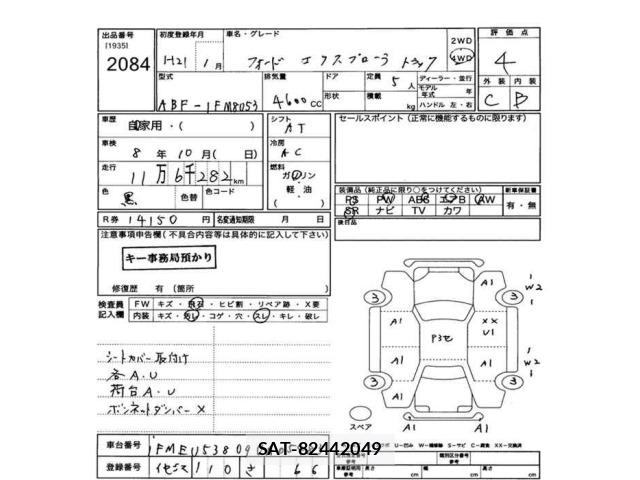 出品番号
[1935]
2084
初度登録年月
H21 年 1月
車名・グレード
フォード エクスプローラ トラック
2WD
4WD
評価点
4
型式
ABF-1FM8053
排気量
4600CC
ドア
形状
定員 5人
積載 kg
ディーラー・並行
モデル年式 年
ハンドル 左・右
外装 内装
C B
車歴
自家用・( )
シフト
AT
セールスポイント (正常に機能するものに限ります)
車検
8年10月( 日)
冷房
AC
走行
11万6千282km
燃料
ガソリン
軽・油
( )
色
黒
色替
色コード
装備品(純正品に限り○をつけてください)
新車保証書
PS PW ABS エアB AW
SR ナビ TV カワ
有・無
R券 14150円
名変通知期限 月 日
後日品
注意事項申告欄(不具合内容等は具体的に記入して下さい)
キー事務局預かり
修復歴 有(箇所 )
検査員記入欄
FW キズ・飛石・ヒビ割・リペア跡・X要
内装 キズ・汚レ・コゲ・穴・スレ・キレ・破レ
シートカバー取付け
各A.U
荷台A.U
ボンネットダンパーX
3
A1
W2
3
A1
A1
XX
U1
P3セ
A1
A1
W2
3
A1
3
A1
A1
スペア
U-凹み W-補修跡 S-サビ C-腐食 XX-交換済
車台番号
1FMEU53809
SAT-82442049
登録番号
110 さ 66
類別区分番号
参考
車庫証明用
参考
長さ cm
幅 cm
高さ cm